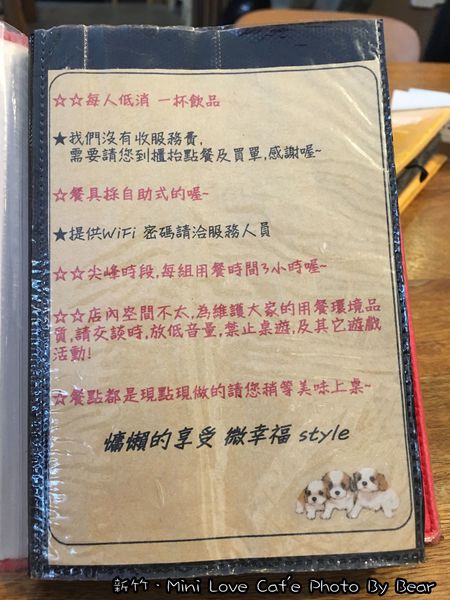 ☆☆每人低消 一杯飲品
★我們沒有收服務費,
需要請您到櫃枱點餐及買單,感謝喔~
☆餐具採自助式的喔~
★提供WiFi 密碼請洽服務人員
☆☆尖峰時段,每組用餐時間3小時喔~
☆☆店內空間不大,為維護大家的用餐環境品
質,請交談時,放低音量,禁止桌遊,及其它遊戲
活動!
☆餐點都是現點現做的請您稍等美味上桌~
慵懶的享受 微幸福 style
新竹·Mini Love Caf'e Photo By Bear